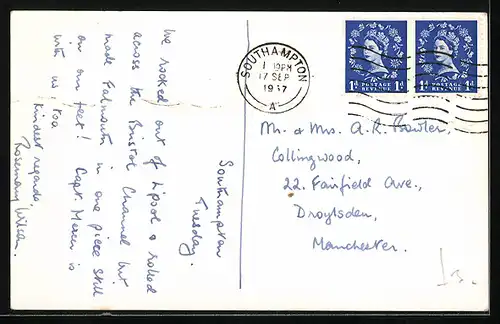 Southampton
Tuesday.
We rocked out of L'pool & rolled
across the Bristol Channel but
made Falmouth in one piece still
on our feet! Capt. Mercer is
with us, too
Kindest regards,
Rosemary Wilson.
SOUTHAMPTON
17 SEP
1957
A
POSTAGE
REVENUE
1D
1D
POSTAGE
REVENUE
1D
1D
Mr. & Mrs. A. R. Bowler,
Collingwood,
22. Fairfield Ave.,
Droylsden,
Manchester.